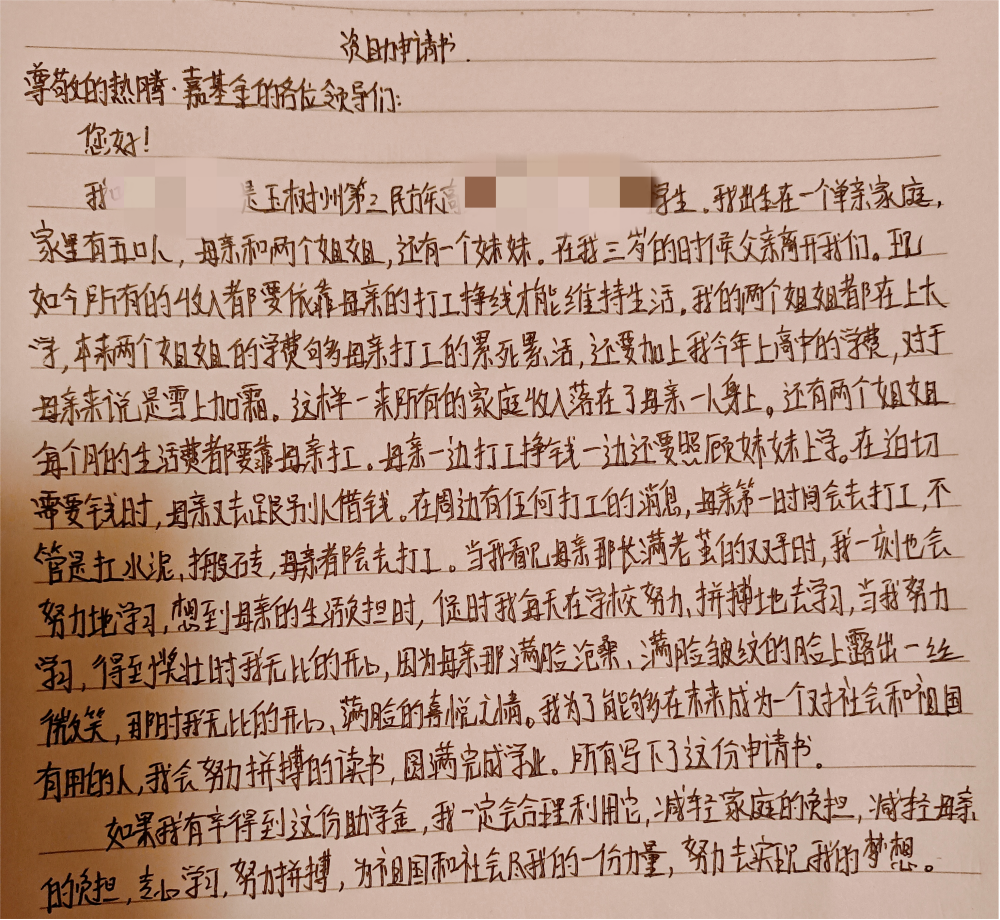 资助申请书.
尊敬的热腾·嘉基金的各位领导们:
您好!
我 是玉树州第三民族高 学生。我出生在一个单亲家庭,
家里有五口人,母亲和两个姐姐,还有一个妹妹。在我三岁的时候父亲离开我们。现
如今所有的收入都要依靠母亲的打工挣钱才能维持生活。我的两个姐姐都在上大
学,本来两个姐姐的学费句多母亲打工的累死累活,还要加上我今年上高中的学费,对于
母亲来说是雪上加霜。这样一来所有的家庭收入落在了母亲一人身上。还有两个姐姐
每个月的生活费都要靠母亲打工。母亲一边打工挣钱一边还要照顾妹妹上学。在迫切
需要钱时,母亲又去跟别人借钱。在周边有任何打工的消息,母亲第一时间会去打工,不
管是扛水泥,搬砖,母亲都会去打工。当我看见母亲那长满老茧的双手时,我一刻也会
努力地学习,想到母亲的生活负担时,促时我每天在学校努力、拼搏地去学习,当我努力
学习,得到奖状时我无比的开心,因为母亲那满脸沧桑、满脸皱纹的脸上露出一丝
微笑,那时我无比的开心、满脸的喜悦之情。我为了能够在未来成为一个对社会和祖国
有用的人,我会努力拼搏的读书,圆满完成学业。所有写下了这份申请书。
如果我有幸得到这份助学金,我一定会合理利用它,减轻家庭的负担,减轻母亲
的负担,专心学习,努力拼搏,为祖国和社会尽我的一份力量,努力去实现我的梦想。